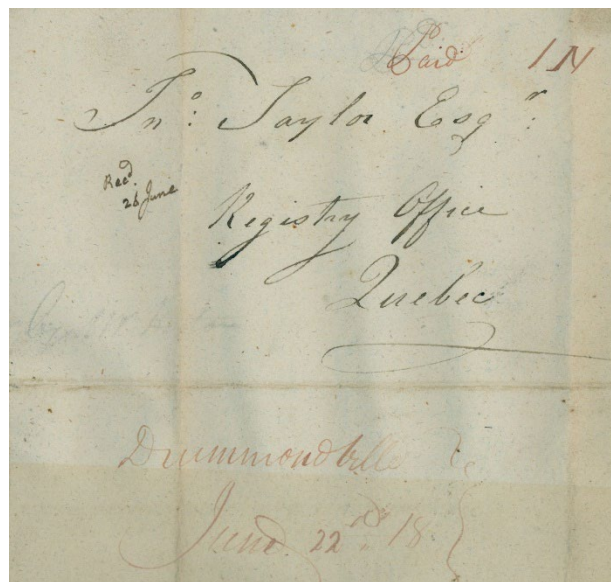 Paid 1 N
Jnº: Taylor Esqr:
Recd.
26 June
Registry Office
Quebec
Drummondville
June 22nd. 18